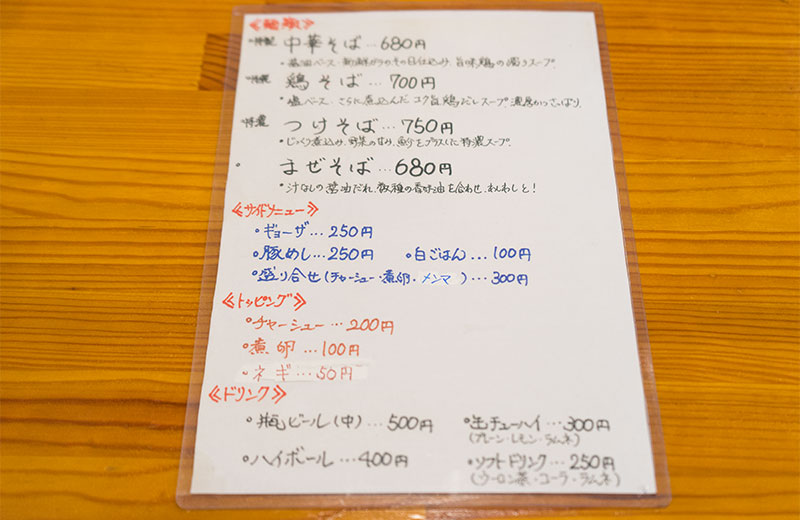 ≪麺類≫
・特製 中華そば…680円
・醤油ベース・新鮮ガラのその日仕込み、旨味鶏の濁りスープ。
・特製 鶏そば…700円
・塩ベース・さらに煮込んだコク旨鶏だしスープ。濃厚かつさっぱり
・特濃 つけそば…750円
・じっくり煮込み、野菜の甘み、魚介をプラスした特濃スープ。
・まぜそば…680円
・汁なしの醤油だれ、数種の香味油を合わせ、わしわしと!
≪サイドメニュー≫
・ギョーザ…250円
・豚めし…250円 ・白ごはん…100円
・盛り合せ(チャーシュー・煮卵・メンマ)…300円
≪トッピング≫
・チャーシュー…200円
・煮卵…100円
・ネギ…50円
≪ドリンク≫
・瓶ビール(中)…500円 ・缶チューハイ…300円
(プレーン・レモン・ラムネ)
・ハイボール…400円 ・ソフトドリンク…250円
(ウーロン茶・コーラ・ラムネ)